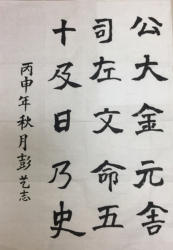 公大金元舍
司左文命五
十及日乃史
丙申年秋月彭艺志